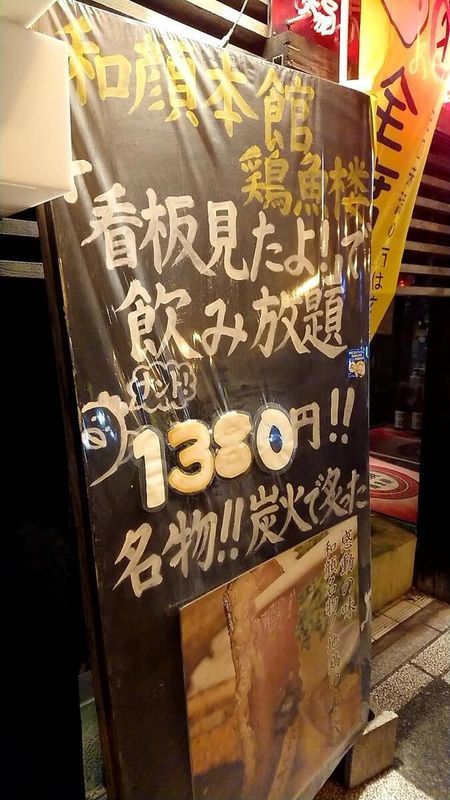 和顔本館
鶏魚楼
看板見たよ!で
飲み放題
ナント!!
1380円!!
名物!!炭火で炙った
感動の味